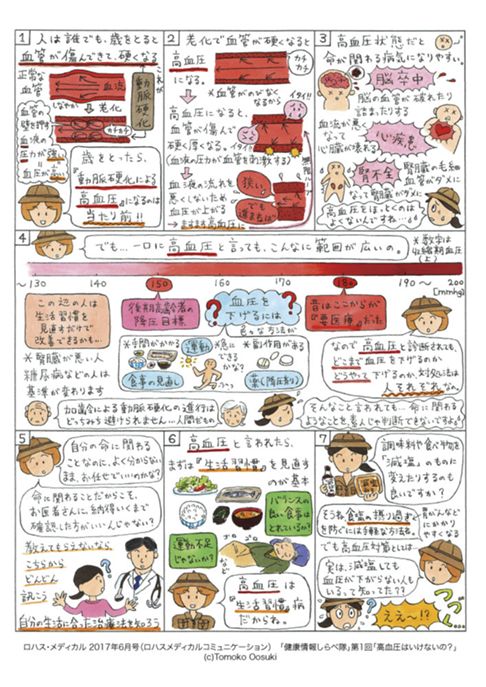 1 人は誰でも、歳をとると
血管が傷んできて、硬くなる
正常な
血管
血流
しなやか
老化
カチカチ
動脈硬化
血管の
壁を押す
血液の
圧力が強い
=血圧が高い
歳をとったら、
『動脈硬化』による
高血圧になるのは
当たり前!!
2 老化で血管が硬くなると
高血圧
になる。
カチカチ
※血管がのびなく
なるから
高血圧になると
血管が傷んで
硬く厚くなる。
(血液の圧力が血管を刺激する)
イタイ!!
血液の流れを
悪くしないため
血圧が上がる
ますます高血圧に
狭い。
でも
進まねば
3 高血圧状態だと
命が関わる病気になりやすい。
脳卒中
脳の血管が破れたり
詰まったりする
血流が悪く
なって
心臓が壊れる
心疾患
腎不全
腎臓の毛細
血管がダメに
なって腎臓がダメに
高血圧をほっとくのは
よくないんですね…
4 でも…一口に高血圧と言っても、こんなに範囲が広いの。
※数字は
収縮期血圧
(上)
~130 140 150 160 170 180 190~200
[mmhg]
この辺の人は
生活習慣を
見直すだけで
改善できるかも…
後期高齢者の
降圧目標
血圧を
下げるには
色々な方法が
昔はここからが
『要医療』だった
※腎臓が悪い人
糖尿病などの人は
基準が変わります
※手間がかかる
食事の見直し
運動
※急に
できる
かな?
※副作用がある
薬(降圧剤)
なので高血圧と診断されても、
どこまで血圧を下げるのか
どうやって下げるのか、対処法は
人それぞれなの。
加齢による動脈硬化の進行は
どっちみち避けられません…人間だもの
そんなこと言われても…命に関わる
ようなことを素人じゃ判断できないですよ
5 自分の命に関わる
ことなのに、よく分からない
まま、お任せでいいのかな?
命に関わることだからこそ、
お医者さんに、納得いくまで
確認した方がいいんじゃない?
教えてもらえないなら
こちらから
どんどん
訊こう
自分の生活に合った治療法を知ろう
6 高血圧と言われたら、
まずは『生活習慣』を見直す
のが基本
バランスの
良い食事は
とれているか?
運動不足
じゃないか?
高血圧は
『生活習慣』病
だからね。
7 調味料や食べ物を
『減塩』のものに
変えたりするのも
良いですか?
そうね、食塩の摂り過ぎ
を防ぐには手軽な方法ね。
胃がんなど
にかかり
やすくなる
でも高血圧対策としては…
実は、減塩しても
血圧が下がらない人も
いるって知ってた??
ええ~!?
ロハス・メディカル 2017年6月号(ロハスメディカルコミュニケーション) 「健康情報しらべ隊」第1回「高血圧はいけないの?」
(c)Tomoko Oosuki